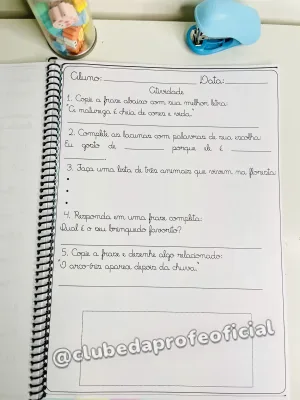 Aluno: Data:
Atividade
1. Copie a frase abaixo com sua melhor letra:
"A natureza é cheia de cores e vida."
2. Complete as lacunas com palavras de sua escolha:
Eu gosto de porque ele é
3. Faça uma lista de três animais que vivem na floresta:
4. Responda em uma frase completa:
Qual é o seu brinquedo favorito?
5. Copie a frase e desenhe algo relacionado:
"O arco-íris aparece depois da chuva."
@clubedaprofeoficial